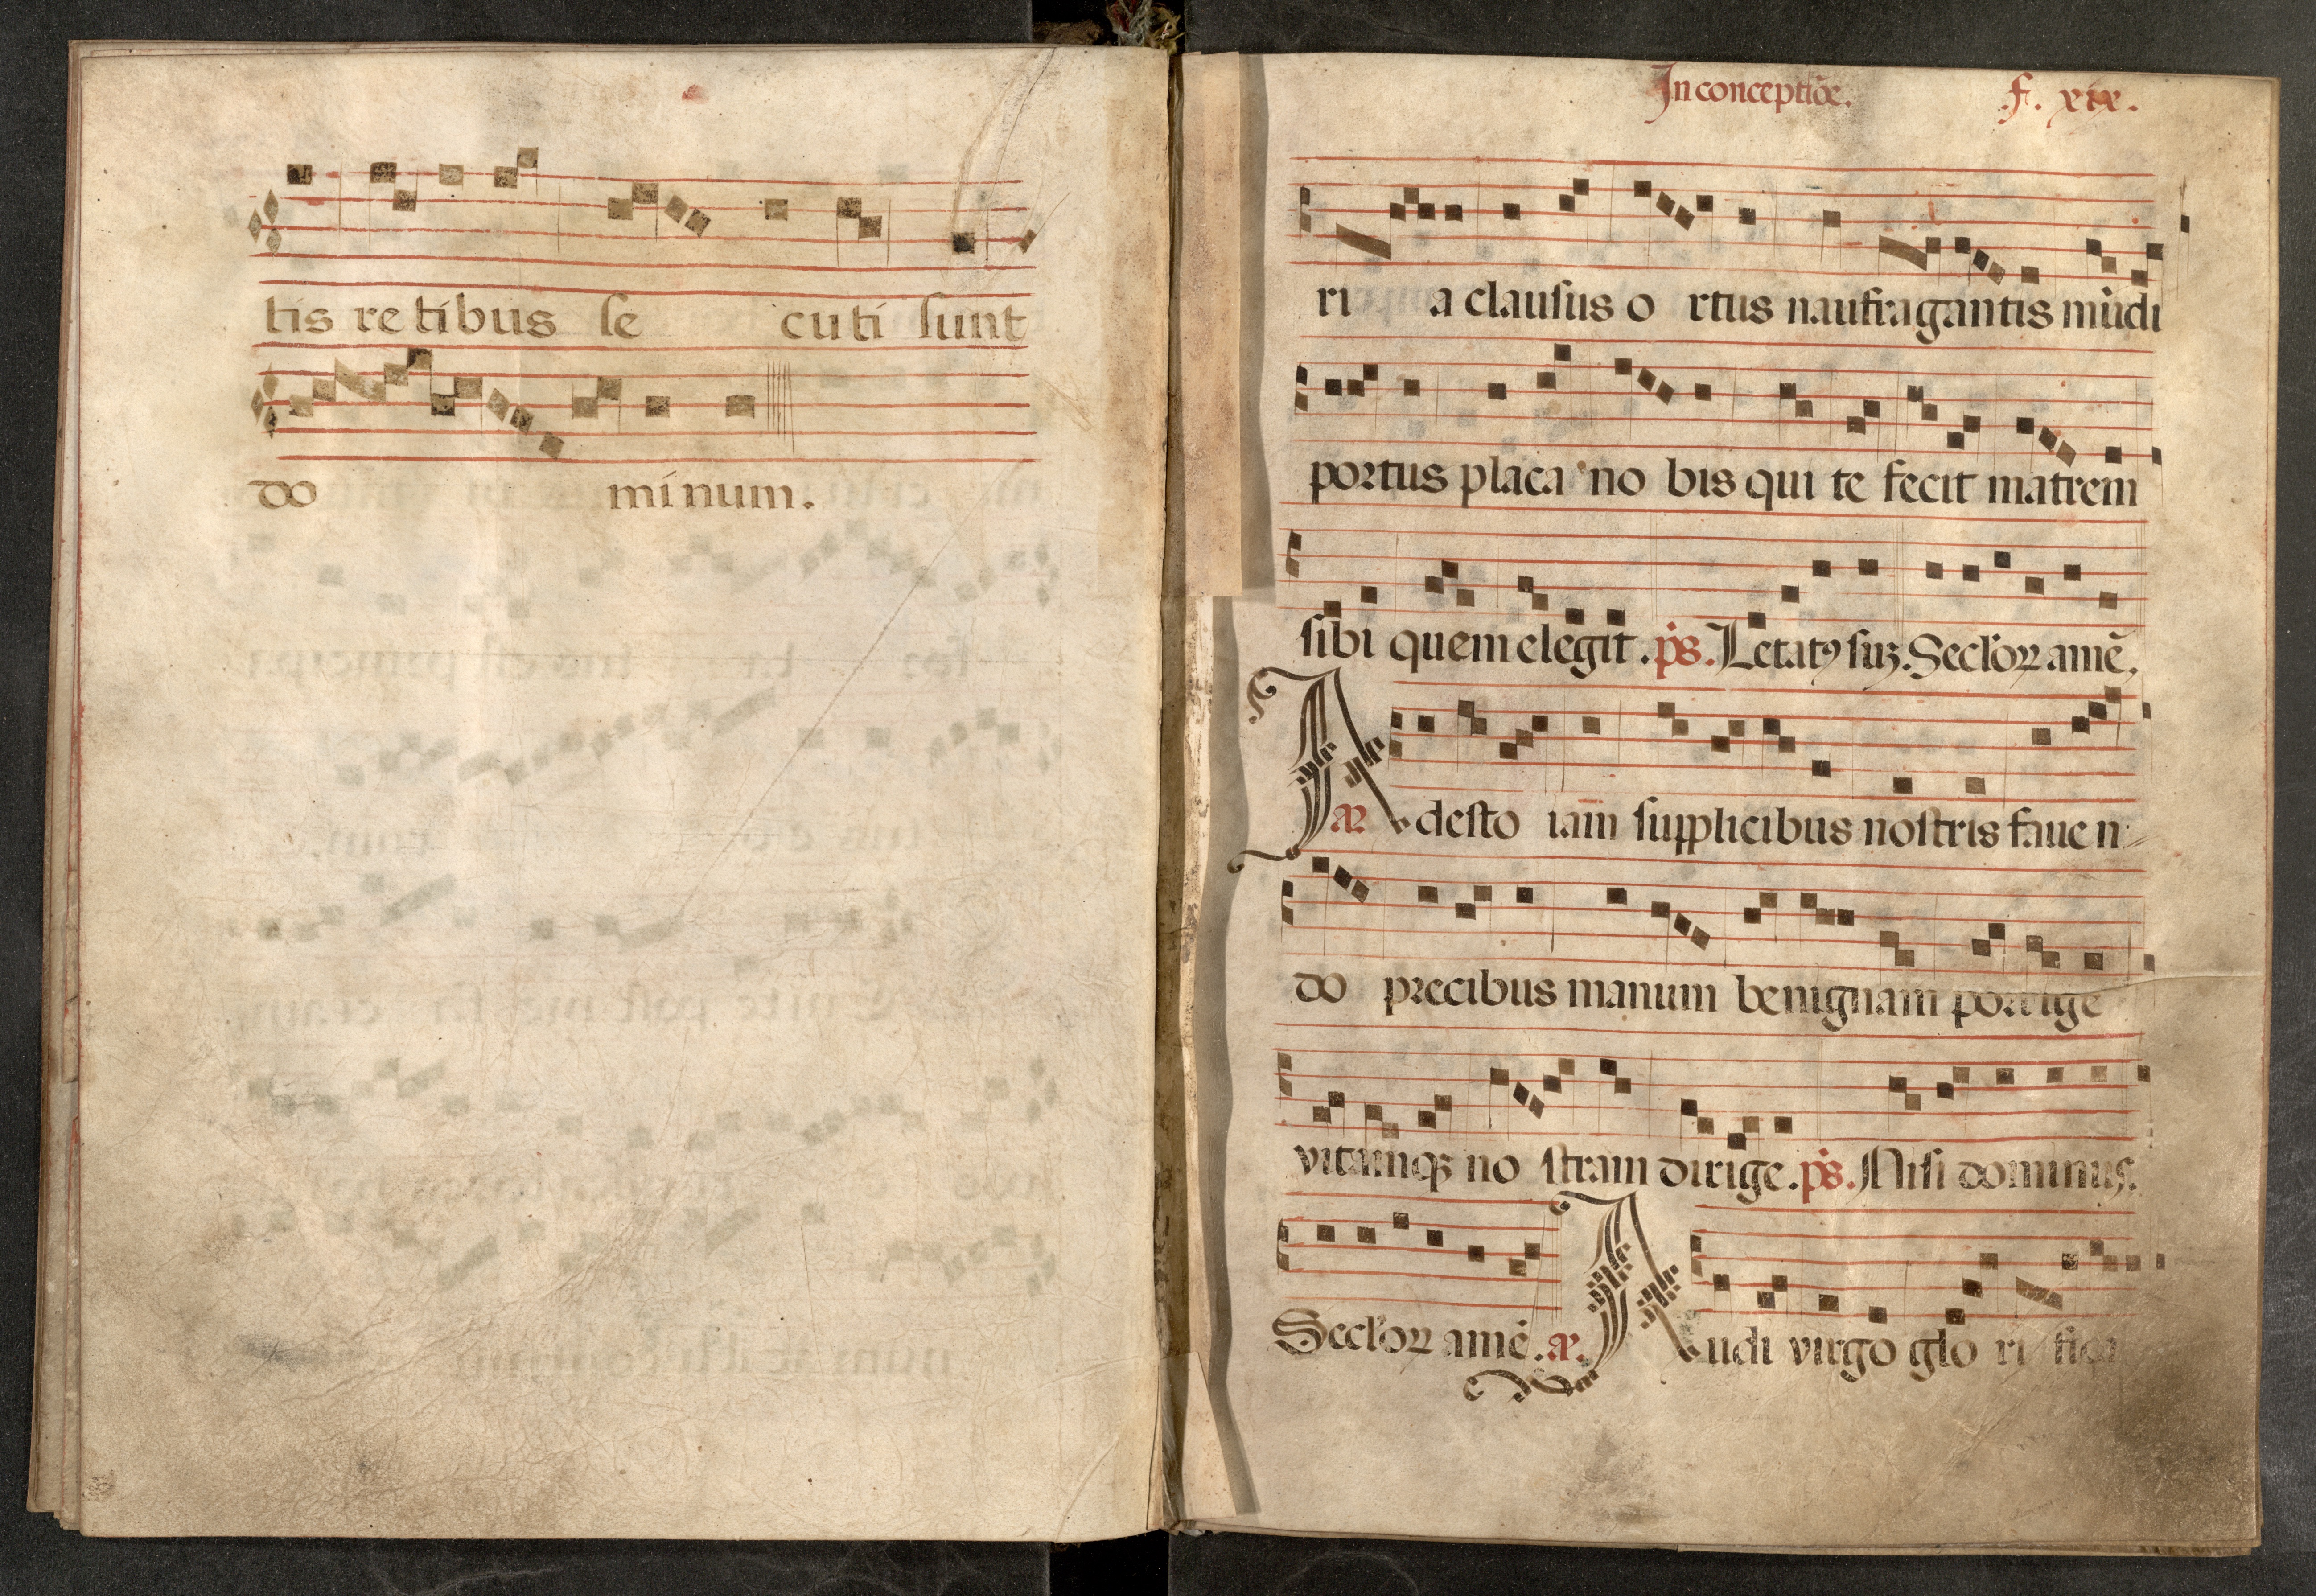 tis retibus se cuti sunt
do minum.
In conceptiõe. f. xix.
ri a clausus o rtus naufragantis mũdi
portus placa no bis qui te fecit matrem
sibi quem elegit. p̃s. Letatꝯ suꝫ. Secl'oꝝ amẽ.
A desto iam supplicibus nostris faue n
do precibus manum benignam porrige
vitamqꝫ no stram dirige. p̃s. Nisi dominus.
Secl'oꝝ amẽ. Audi virgo glo ri fica